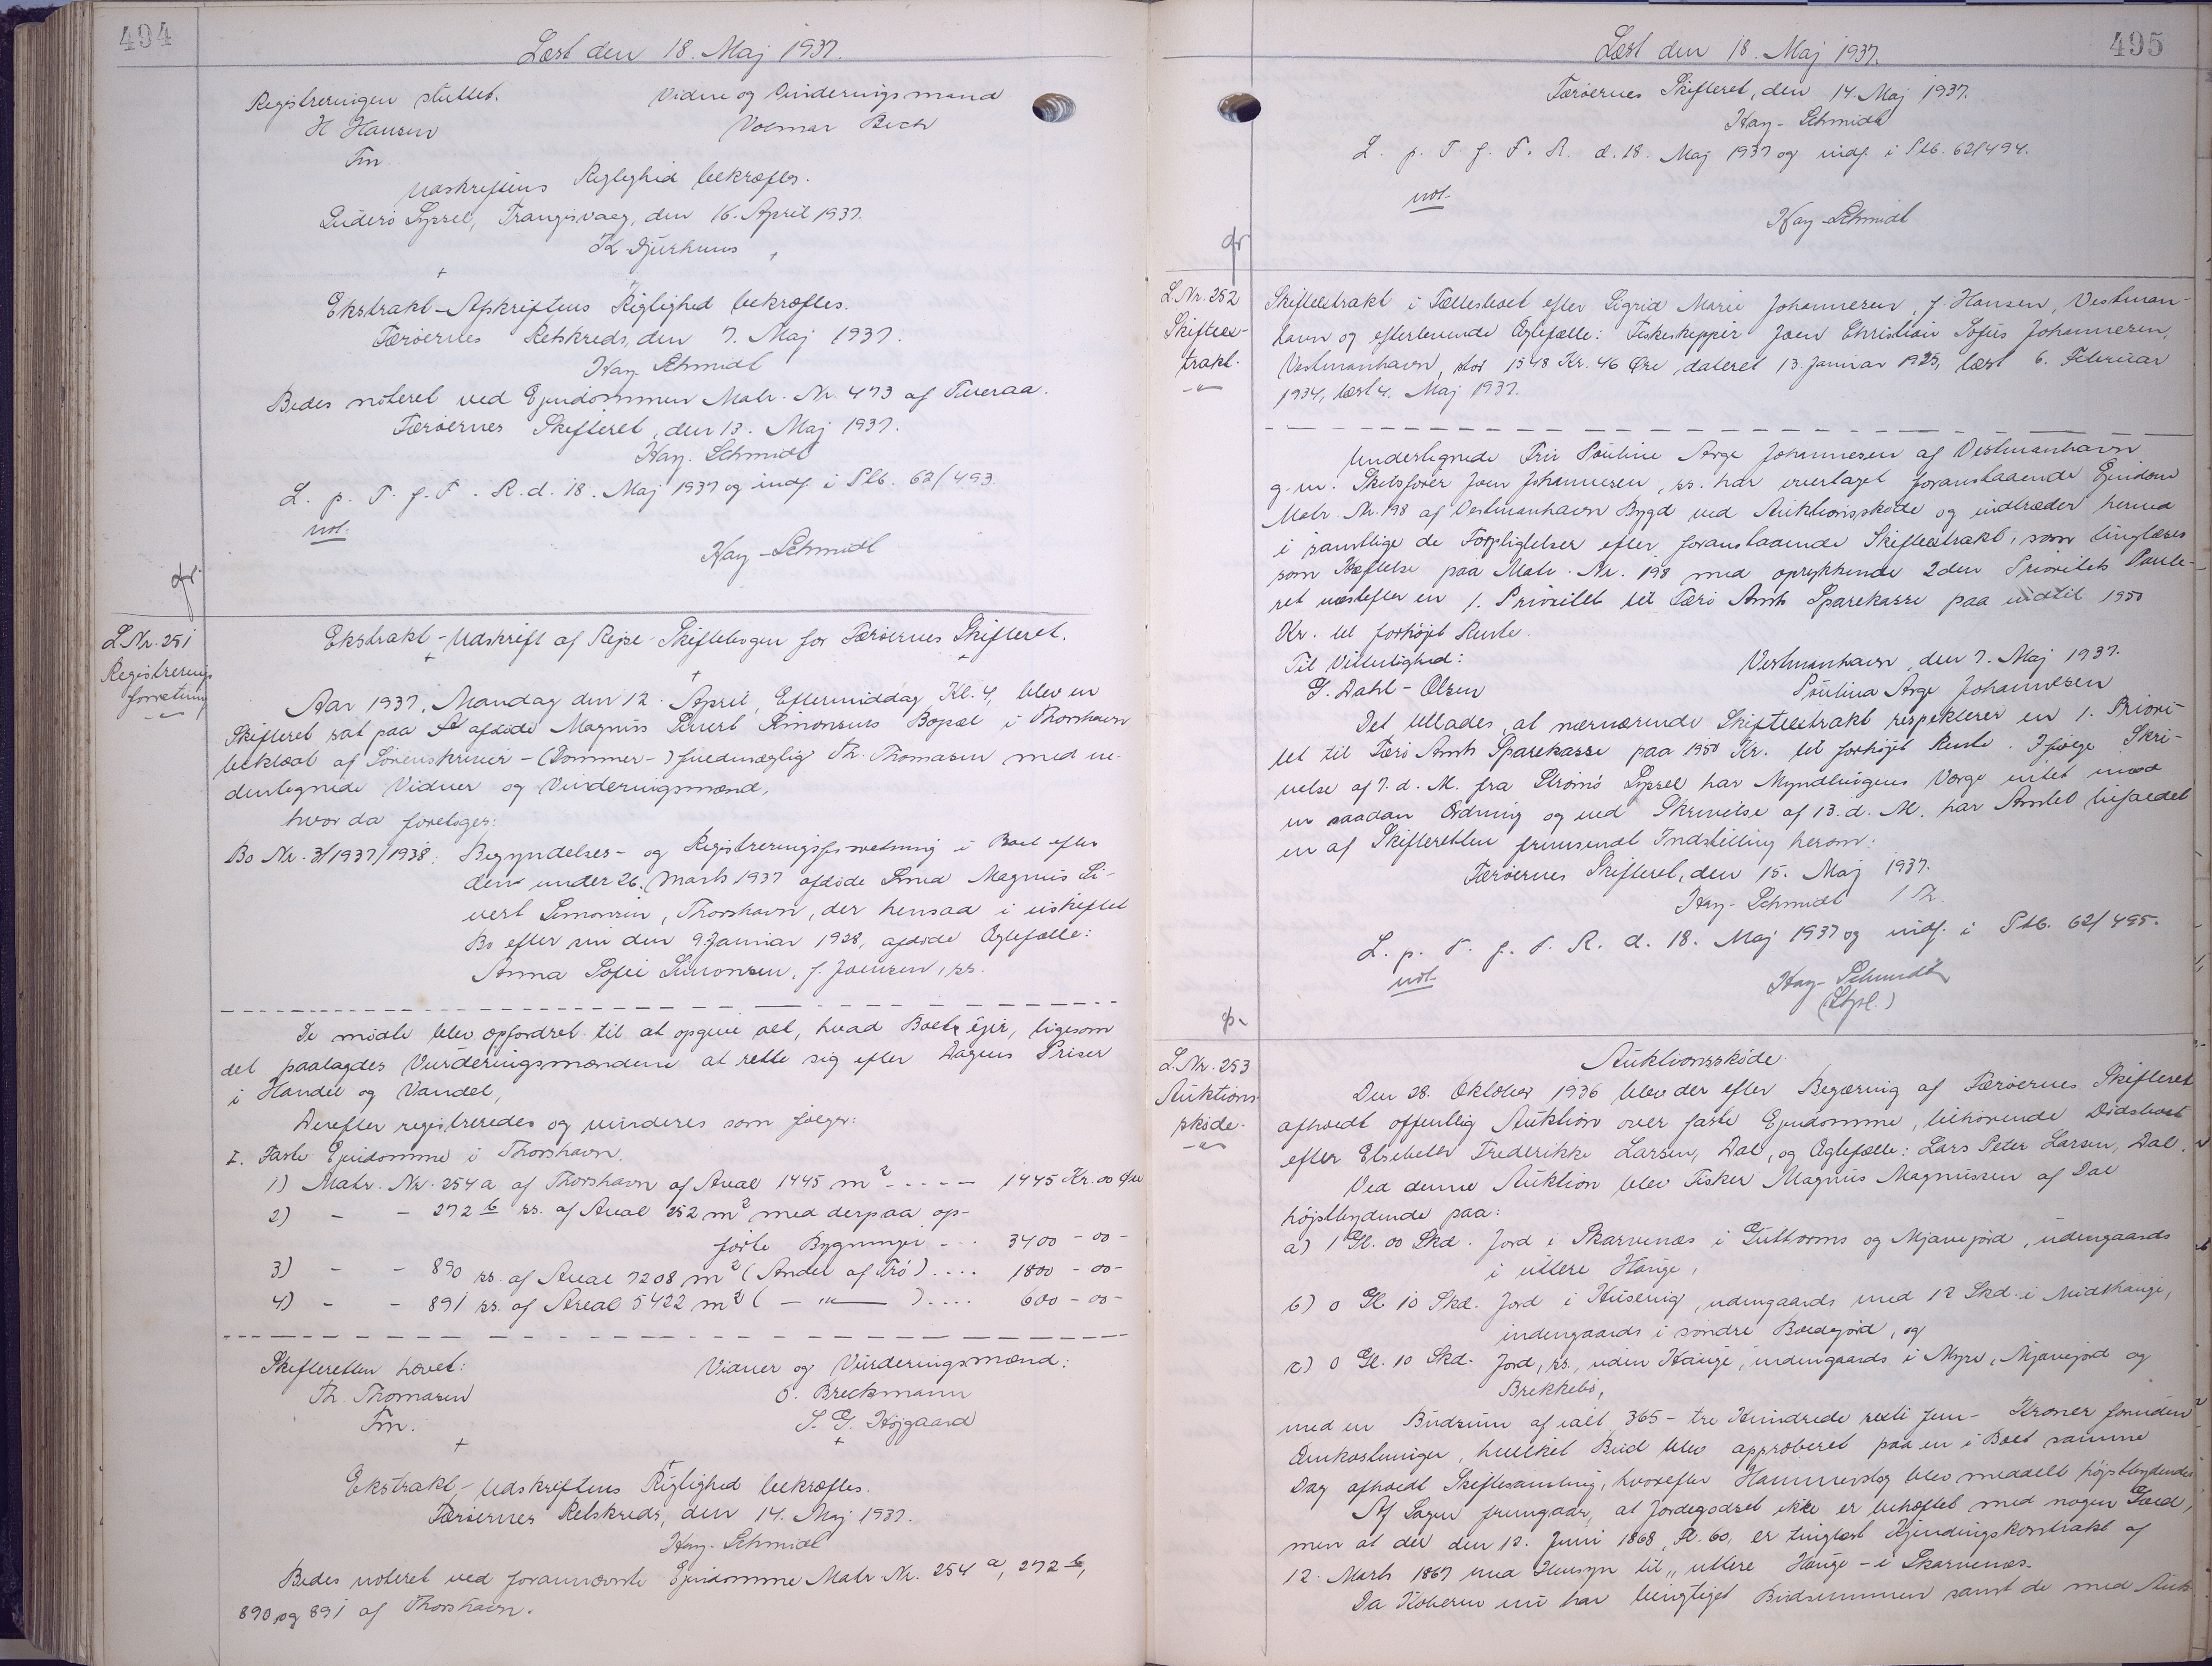 494
Læst den 18. Maj 1937.
Registreringen sluttet.
Vidne og Vurderingsmand
H Hansen
Volmar Bech
Fm.
Udskriftens Rigtighed bekræftes.
Suderø Syssel, Trangisvaag, den 16. April 1937.
K Djurhuus
Ekstrakt-Afskriftens Rigtighed bekræftes.
Færøernes Retskreds, den 7. Maj 1937.
Kay Schmidt
Bedes noteret ved Ejendommen Matr. Nr. 473 af Tveraa.
Færøernes Skifteret, den 13. Maj 1937.
Kay. Schmidt
L. p. T. f. F. R. d. 18. Maj 1937 og indf. i Plb. 62/493.
not.
Kay-Schmidt
L Nr. 251
Registrerings
forretning
Ekstrakt-Udskrift af Rejse-Skiftebogen for Færøernes Skifteret.
Aar 1937, Mandag den 12. April, Eftermiddag Kl. 4, blev en
Skifteret sat paa afdøde Magnus Sivert Simonsens Bopæl i Thorshavn
beklædt af Sorenskriver-(Dommer-)fuldmægtig Th. Thomasen med un-
dertegnede Vidner og Vurderingsmænd,
hvor da foretoges:
Bo Nr. 3/1937/1938: Begyndelses- og Registreringsforretning i Boet efter
den under 26. Marts 1937 afdøde Smed Magnus Si-
vert Simonsen, Thorshavn, der hensad i uskiftet
Bo efter sin den 9. Januar 1928, afdøde Ægtefælle:
Anna Sofie Simonsen, f. Joensen, ss.
De mødte blev opfordret til at opgive alt, hvad Boet ejer, ligesom
det paalagdes Vurderingsmændene at rette sig efter Dagens Priser
i Handel og Vandel,
Derefter registreredes og vurderes som følger:
I. Faste Ejendomme i Thorshavn.
1) Matr. Nr. 254a af Thorshavn af Areal 1445 m² - - - - - 1445 Kr. 00 Øre
2) - - 272 b ss. af Areal 252 m² med derpaa op-
førte Bygninger - - . 3400 - 00 -
3) - - 890 ss. af Areal 7208 m² (Andel af Trø) .... 1800 - 00 -
4) - - 891 ss. af Areal 5422 m² ( - " - ) .... 600 - 00 -
Skifteretten hævet:
Vidner og Vurderingsmænd:
Th. Thomasen
O. Breckmann
Fm.
S. G. Højgaard
Ekstrakt-Udskriftens Rigtighed bekræftes.
Færøernes Retskreds, den 14. Maj 1937.
Kay-Schmidt
Bedes noteret ved forannævnte Ejendomme Matr. Nr. 254 a, 272 b,
890 og 891 af Thorshavn.
495
Læst den 18. Maj 1937.
Færøernes Skifteret, den 14. Maj 1937.
Kay-Schmidt
L. p. T. f. F. R. d. 18. Maj 1937 og indf. i Plb. 62/494.
not.
Kay-Schmidt
L. Nr. 252
Skifteex-
trakt.
Skifteextrakt i Fællesboet efter Sigrid Marie Johannesen, f. Hansen, Vestman-
havn og efterlevende Ægtefælle: Fiskeskipper Joen Christian Sofus Johannesen,
Vestmanhavn, stor 1548 Kr. 46 Øre, dateret 13. Januar 1925, læst 6. Februar
1934, læst 4. Maj 1937.
Undertegnede Fru Pouline Arge Johannesen af Vestmanhavn
g. m. Skibsfører Joen Johannesen, ss. har overtaget foranstaaende Ejendom
Matr. Nr. 198 af Vestmanhavn Bygd ved Auktionsskøde og indtræder herved
i samtlige de Forpligtelser efter foranstaaende Skifteextrakt, som tinglæses
som Hæftelse paa Matr. Nr. 198 med oprykkende 2den Prioritets Pante-
ret næstefter en 1. Prioritet til Færø Amts Sparekasse paa indtil 1950
Kr. til forhøjet Rente.
Til Vitterlighed:
Vestmanhavn, den 7. Maj 1937.
G. Dahl-Olsen
Poulina Arge Johannesen
Det tillades, at nærværende Skifteextrakt respekterer en 1. Priori-
tet til Færø Amts Sparekasse paa 1950 Kr. til forhøjet Rente. Ifølge Skri-
velse af 7. d. M. fra Strømø Syssel har Myndlingens Værge intet mod
en saadan Ordning og ved Skrivelse af 13. d. M. har Amtet bifaldet
en af Skifteretten fremsendt Indstilling herom.
Færøernes Skifteret, den 15. Maj 1937.
Kay-Schmidt
L. p. T. f. F. R. d. 18. Maj 1937 og indf. i Plb. 62/495.
not.
Kay-Schmidt
L. Nr. 253
Auktions
skøde.
Auktionsskøde.
Den 28. Oktober 1936 blev der efter Begæring af Færøernes Skifteret
afholdt offentlig Auktion over faste Ejendomme, tilhørende Dødsboet
efter Elsebeth Frederikke Larsen, Dal, og Ægtefælle: Lars Peter Larsen, Dal.
Ved denne Auktion blev Fisker Magnus Magnussen af Dal
højstbydende paa:
a) 1 Gl. 00 Skd. Jord i Skarvenæs i Guttorms og Mjavejord, udengaards
i uttere Hauge,
b) 0 Gl. 10 Skd. Jord i Husevig, udengaards med 12 Skd. i Midthauge,
indengaards i søndre Boedejord, og
c) 0 Gl. 10 Skd. Jord, ss., uden Hauge, indengaards i Myre, Mjavejord og
Brekkebø,
med en Budsum af ialt 365 - tre Hundrede seksti fem - Kroner foruden
Omkostninger, hvilket Bud blev approberet paa en i Boet samme
Dag afholdt Skiftesamling, hvorefter Hammerslag blev meddelt højstbydende.
Af Sagen fremgaar, at Jordegodset ikke er behæftet med nogen Gæld,
men at der den 12. Juni 1868, Fl. 60, er tinglæst Kjendingskontrakt af
12. Marts 1867 med Hensyn til "uttere Hauge - i Skarvenæs.
Da Køberen nu har berigtiget Budsummen samt de med Auk-